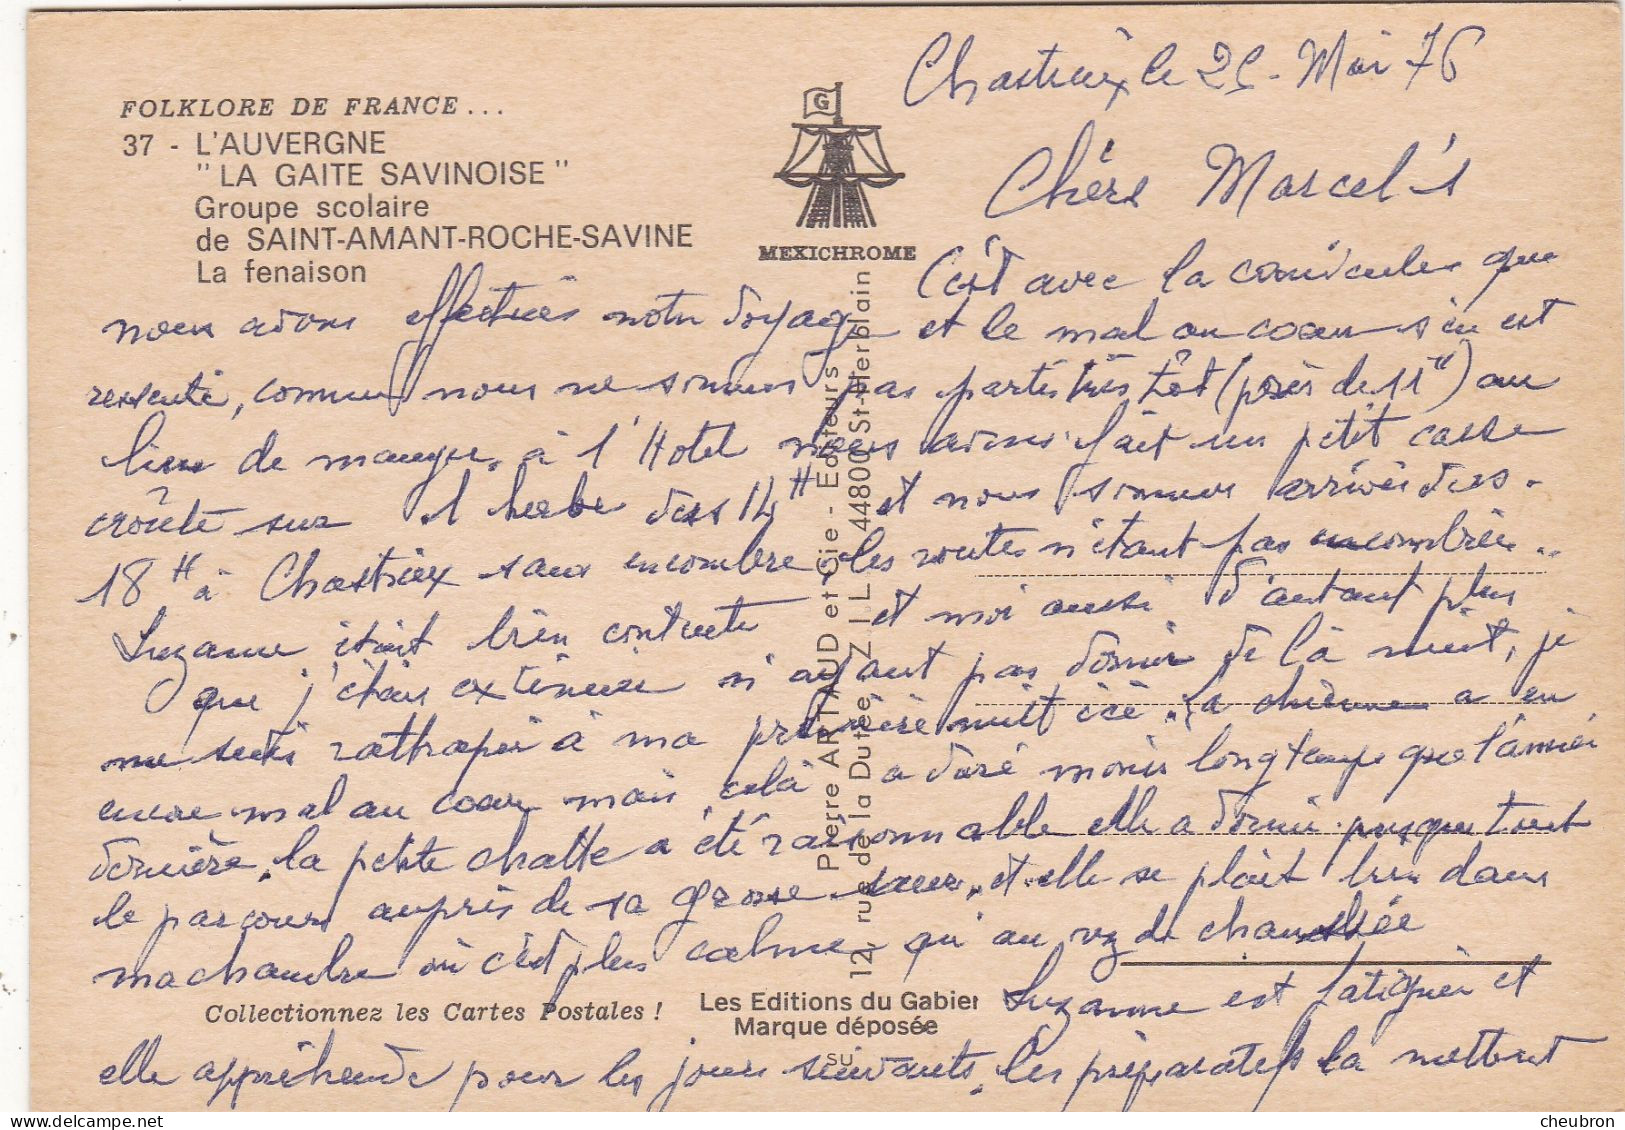 Chastreix le 25 - Mai 76
FOLKLORE DE FRANCE ...
37 - L'AUVERGNE
" LA GAITE SAVINOISE "
Groupe scolaire
de SAINT-AMANT-ROCHE-SAVINE
La fenaison
G
MEXICHROME
Chers Marcel's
C'est avec la canicule que
nous avons effectués notre voyage et le mal au coeur s'en est
ressenti, comme nous ne sommes pas partis très tôt (près de 11H) au
lieu de manger à l'Hotel nous avons fait un petit casse
croûte sur l'herbe vers 14H et nous sommes arrivés vers
18H à Chastreix sans encombre, les routes n'étant pas encombrées..
Suzanne était bien contente et moi aussi d'autant plus
que j'étais exténuée n'ayant pas dormir de là nuit, je
me suis rattrapée à ma première nuit ici. La chienne a eu
encore mal au coeur mais celà a duré moins longtemps que l'année
dernière, la petite chatte a été raisonnable elle a dormi presque tout
le parcours auprès de sa grosse soeur, et elle se plait bien dans
ma chambre où c'est plus calme qu'au rez de chaussée
Suzanne est fatiguée et
elle appréhende pour les jours suivants, les préparatifs la mettent
Pierre ARTAUD et Cie - Editeurs
12, rue de la Dutée Z.I.L. 44800 St-Herblain
Collectionnez les Cartes Postales !
Les Editions du Gabier
Marque déposée
su
cheubron